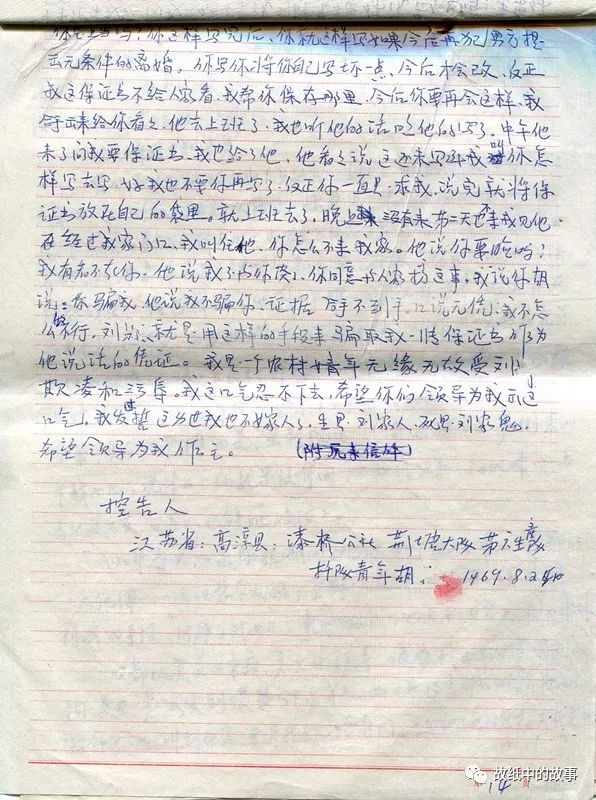 你上当吗？你这样写完后，你就这样写如果今后再犯男方提
出无条件的离婚。你写你将你自己写坏一点，今后才会改，反正
我这保证书不给人家看，我帮你保存那里，今后你要再会这样，我
拿出来给你看之，他去上班了，我也听他的话吃他的写了。中午他
来了问我要保证书，我也给了他，他看之说这还未写叫我你怎
样写去写，好我也不要你再写了，反正你一直求我，说完就将保
证书放在自己的袋里。就上班去了，晚没有来第二天也未我见他
在经过我家门口，我叫住他，你怎么不来我家。他说你要脸吗？
我有者不死你，他说我不你，你同意人家搞这事，我说你胡
说：你骗我，他说我不骗你，证据拿不到手，口说无凭，我不怎
么做不行，刘就是用这样的手段来骗取我一情保证书作为
他说话的凭证。我是一个农村女青年无缘无故受刘
欺凌和污辱。我这口气忍不下去，希望你们领导为我出这
口气，我发誓这另世我也不嫁人了，生是刘家人，死是刘家鬼，
希望领导为我作主。（附玩来信件）
控告人
江苏省：高淳县：漆桥公社荆塘大队第六生产队
插队青年胡：1969.8.2
故纸中的故事
第14页